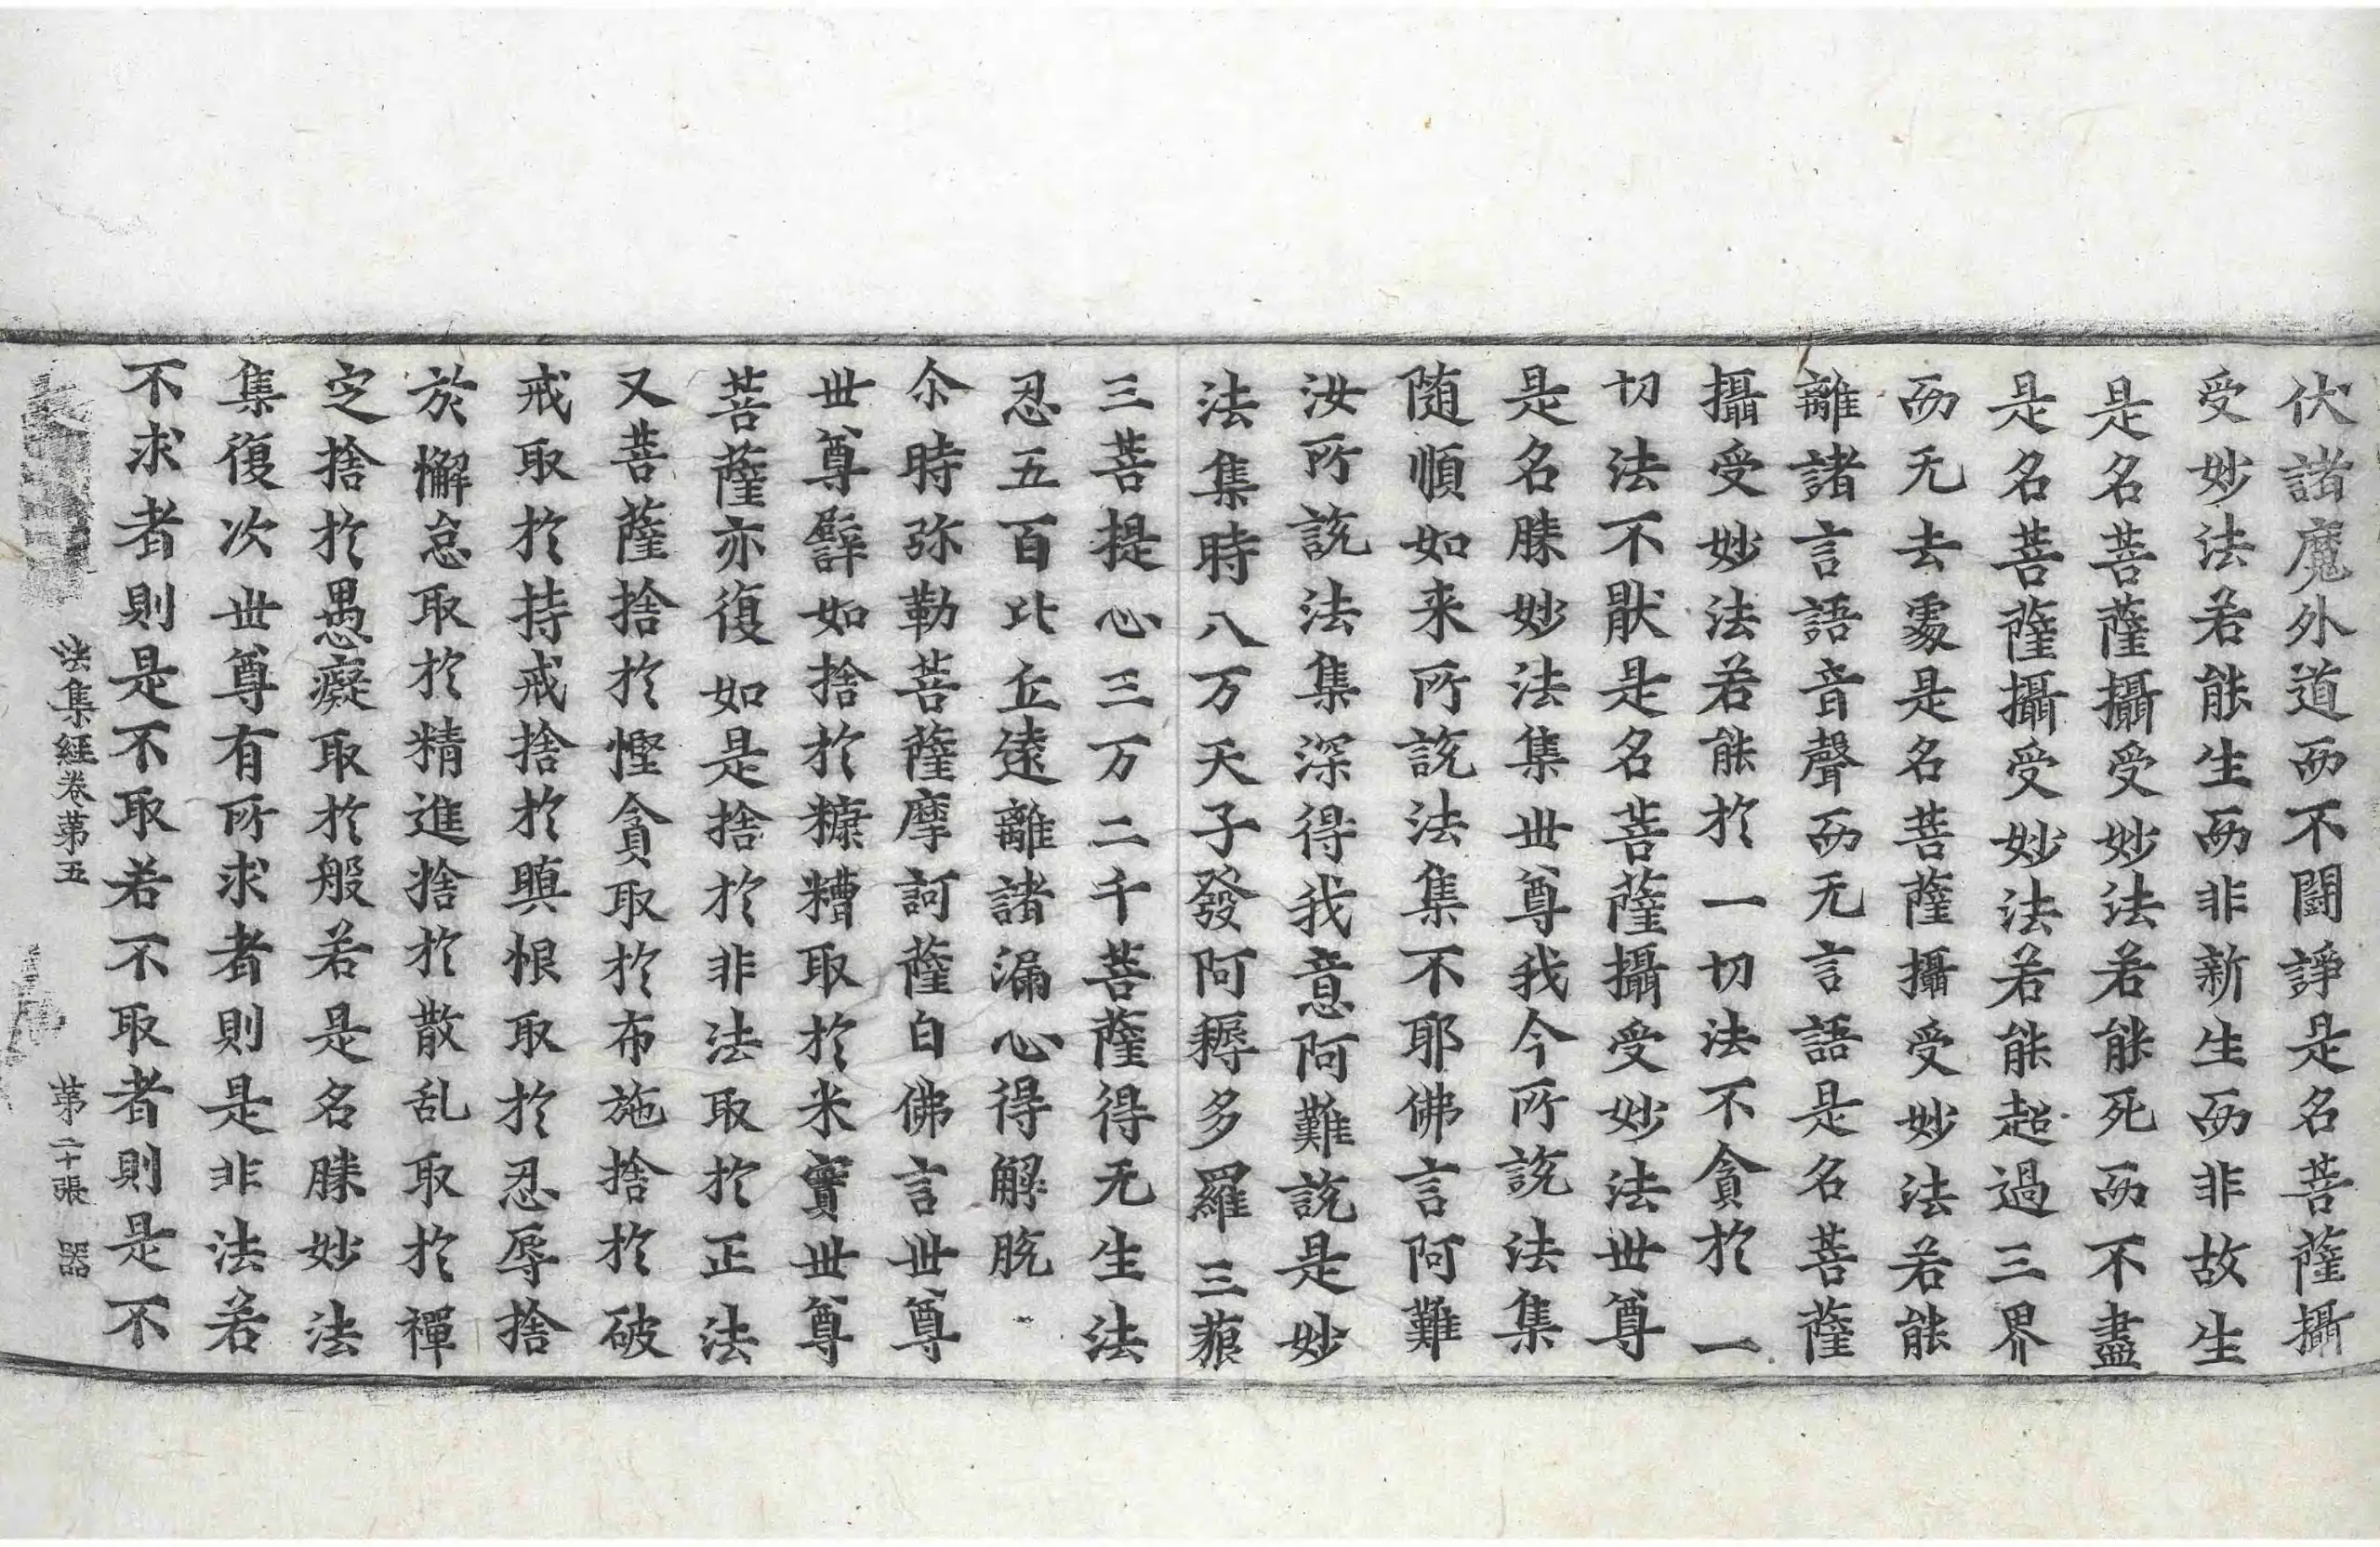 伏諸魔外道而不闘諍是名菩薩攝
受妙法若能生而非新生而非故生
是名菩薩攝受妙法若能死而不盡
是名菩薩攝受妙法若能超過三界
而无去處是名菩薩攝受妙法若能
離諸言語音聲而无言語是名菩薩
攝受妙法若能於一切法不貪於一
切法不猒是名菩薩攝受妙法世尊
是名勝妙法集世尊我今所說法集
随順如来所說法集不耶佛言阿難
汝所說法集深得我意阿難說是妙
法集時八万天子發阿耨多羅三藐
三菩提心三万二千菩薩得无生法
忍五百比丘遠離諸漏心得解脫
尒時弥勒菩薩摩訶薩白佛言世尊
世尊譬如捨於糠糟取於米實世尊
菩薩亦復如是捨於非法取於正法
又菩薩捨於慳貪取於布施捨於破
戒取於持戒捨於瞋恨取於忍辱捨
於懈怠取於精進捨於散乱取於禪
定捨於愚癡取於般若是名勝妙法
集復次世尊有所求者則是非法若
不求者則是不取若不取者則是不
法集経卷第五 第二十張 器